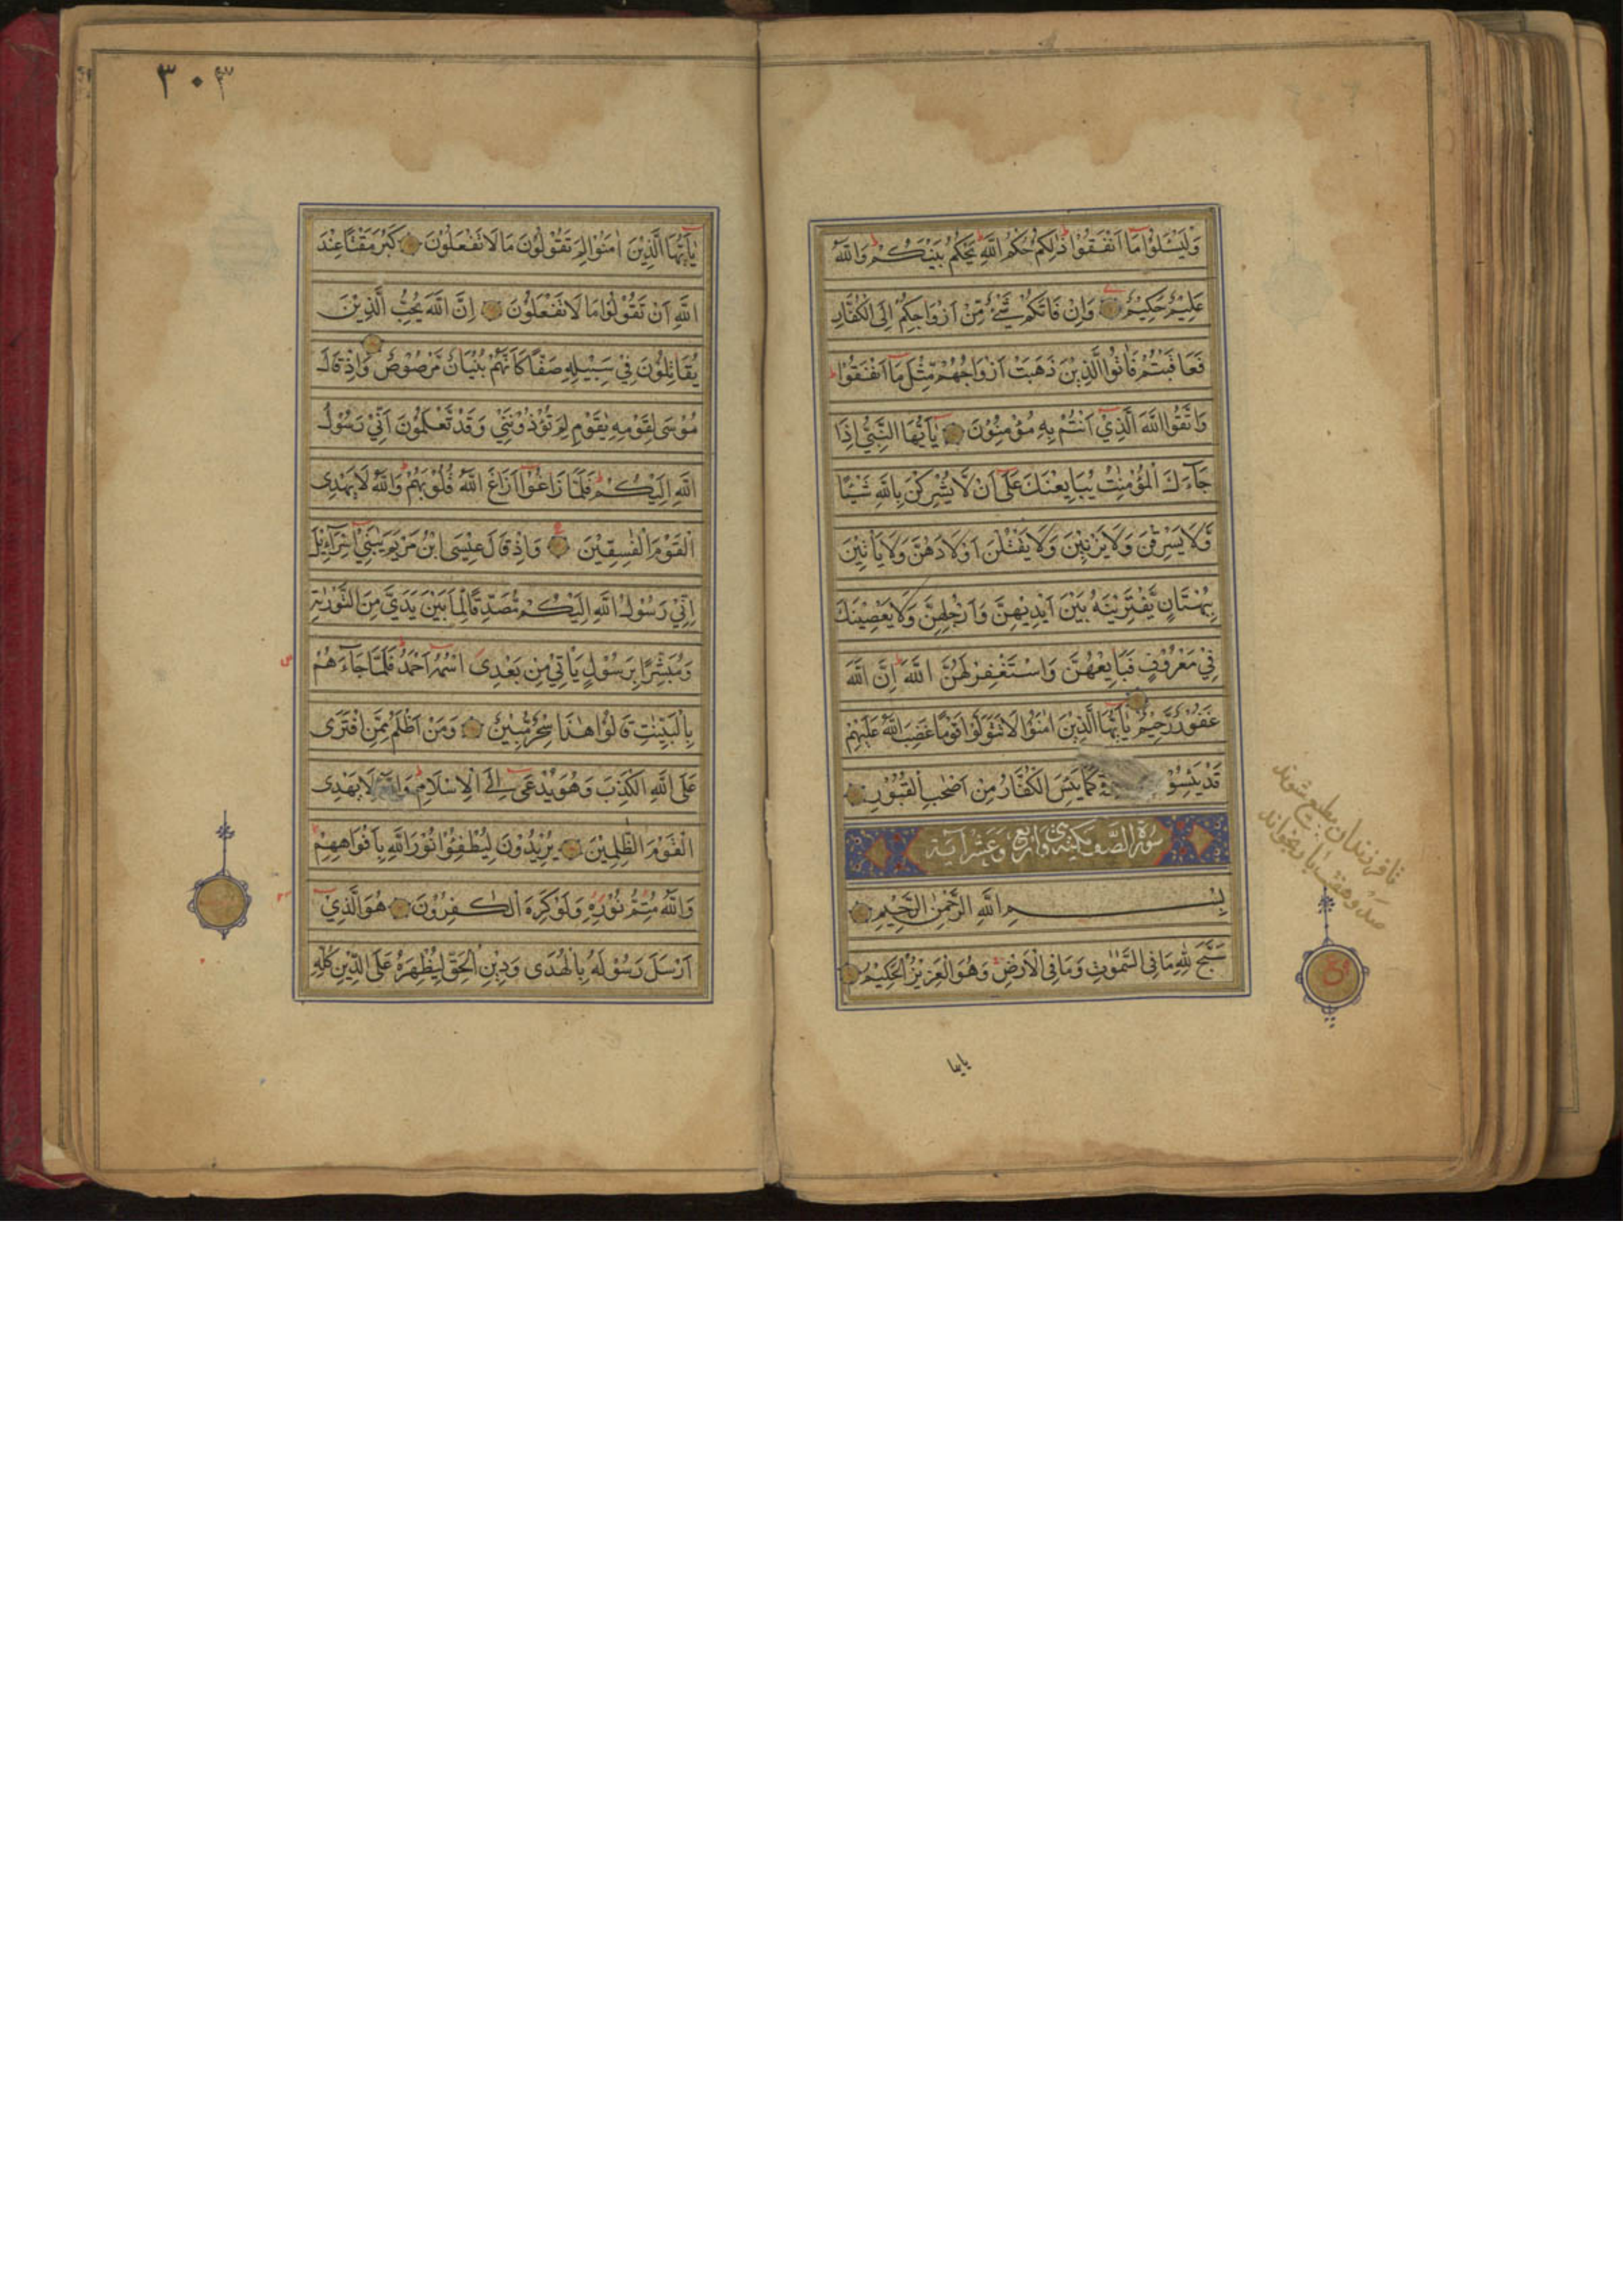 وَلْيَسْئَلُوْا مَآ اَنْفَقُوْا ذٰلِكُمْ حُكْمُ اللّٰهِ يَحْكُمُ بَيْنَكُمْ وَاللّٰهُ
عَلِيْمٌ حَكِيْمٌ وَاِنْ فَاتَكُمْ شَيْءٌ مِّنْ اَزْوَاجِكُمْ اِلَى الْكُفَّارِ
فَعَاقَبْتُمْ فَاٰتُوا الَّذِيْنَ ذَهَبَتْ اَزْوَاجُهُمْ مِّثْلَ مَآ اَنْفَقُوْا
وَاتَّقُوا اللّٰهَ الَّذِيْٓ اَنْتُمْ بِهٖ مُؤْمِنُوْنَ يٰٓاَيُّهَا النَّبِيُّ اِذَا
جَآءَكَ الْمُؤْمِنٰتُ يُبَايِعْنَكَ عَلٰٓى اَنْ لَّا يُشْرِكْنَ بِاللّٰهِ شَيْئًا
وَّلَا يَسْرِقْنَ وَلَا يَزْنِيْنَ وَلَا يَقْتُلْنَ اَوْلَادَهُنَّ وَلَا يَاْتِيْنَ
بِبُهْتَانٍ يَّفْتَرِيْنَهٗ بَيْنَ اَيْدِيْهِنَّ وَاَرْجُلِهِنَّ وَلَا يَعْصِيْنَكَ
فِيْ مَعْرُوْفٍ فَبَايِعْهُنَّ وَاسْتَغْفِرْ لَهُنَّ اللّٰهَ اِنَّ اللّٰهَ
غَفُوْرٌ رَّحِيْمٌ يٰٓاَيُّهَا الَّذِيْنَ اٰمَنُوْا لَا تَتَوَلَّوْا قَوْمًا غَضِبَ اللّٰهُ عَلَيْهِمْ
قَدْ يَئِسُوْ كَمَا يَئِسَ الْكُفَّارُ مِنْ اَصْحٰبِ الْقُبُوْرِ
سورة الصف مكية وهي اربع وعشر آية
بِسْمِ اللّٰهِ الرَّحْمٰنِ الرَّحِيْمِ
سَبَّحَ لِلّٰهِ مَا فِي السَّمٰوٰتِ وَمَا فِي الْاَرْضِ وَهُوَ الْعَزِيْزُ الْحَكِيْمُ
تا فرزندان مطیع شوند
صد و هفت بار بخواند
یایها
٣٠٣
يٰٓاَيُّهَا الَّذِيْنَ اٰمَنُوْا لِمَ تَقُوْلُوْنَ مَا لَا تَفْعَلُوْنَ كَبُرَ مَقْتًا عِنْدَ
اللّٰهِ اَنْ تَقُوْلُوْا مَا لَا تَفْعَلُوْنَ اِنَّ اللّٰهَ يُحِبُّ الَّذِيْنَ
يُقَاتِلُوْنَ فِيْ سَبِيْلِهٖ صَفًّا كَاَنَّهُمْ بُنْيَانٌ مَّرْصُوْصٌ وَاِذْ قَالَ
مُوْسٰى لِقَوْمِهٖ يٰقَوْمِ لِمَ تُؤْذُوْنَنِيْ وَقَدْ تَّعْلَمُوْنَ اَنِّيْ رَسُوْلُ
اللّٰهِ اِلَيْكُمْ فَلَمَّا زَاغُوْٓا اَزَاغَ اللّٰهُ قُلُوْبَهُمْ وَاللّٰهُ لَا يَهْدِى
الْقَوْمَ الْفٰسِقِيْنَ وَاِذْ قَالَ عِيْسَى ابْنُ مَرْيَمَ يٰبَنِيْٓ اِسْرَآءِيْلَ
اِنِّيْ رَسُوْلُ اللّٰهِ اِلَيْكُمْ مُّصَدِّقًا لِّمَا بَيْنَ يَدَيَّ مِنَ التَّوْرٰىةِ
وَمُبَشِّرًا بِرَسُوْلٍ يَّاْتِيْ مِنْ بَعْدِى اسْمُهٗٓ اَحْمَدُ فَلَمَّا جَآءَهُمْ
بِالْبَيِّنٰتِ قَالُوْا هٰذَا سِحْرٌ مُّبِيْنٌ وَمَنْ اَظْلَمُ مِمَّنِ افْتَرٰى
عَلَى اللّٰهِ الْكَذِبَ وَهُوَ يُدْعٰٓى اِلَى الْاِسْلَامِ وَاللّٰهُ لَا يَهْدِى
الْقَوْمَ الظّٰلِمِيْنَ يُرِيْدُوْنَ لِيُطْفِئُوْا نُوْرَ اللّٰهِ بِاَفْوَاهِهِمْ
وَاللّٰهُ مُتِمُّ نُوْرِهٖ وَلَوْ كَرِهَ الْكٰفِرُوْنَ هُوَ الَّذِيْٓ
اَرْسَلَ رَسُوْلَهٗ بِالْهُدٰى وَدِيْنِ الْحَقِّ لِيُظْهِرَهٗ عَلَى الدِّيْنِ كُلِّهٖ